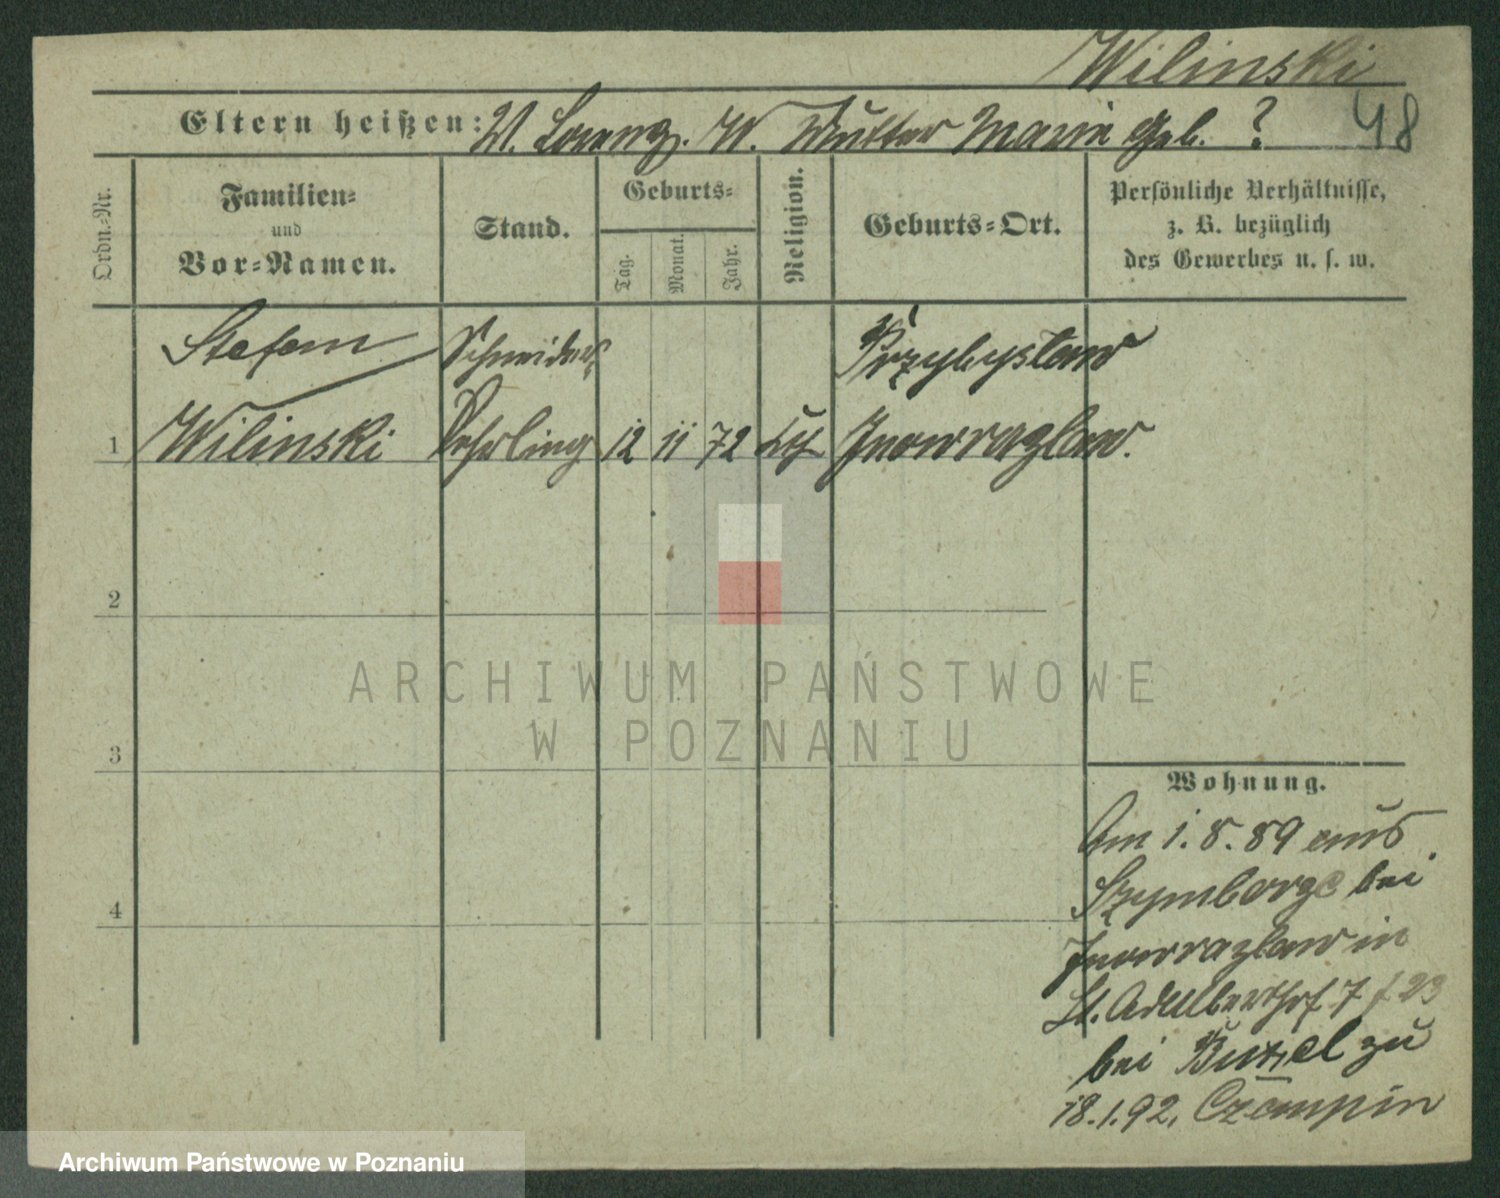 Wilinski
48
Eltern heißen: V. Lorenz. W. Mutter Marie geb. ?
Ordn.-Nr.
Familien-
und
Vor-Namen.
Stand.
Geburts-
Tag.
Monat.
Jahr.
Religion.
Geburts-Ort.
Persönliche Verhältnisse,
z. B. bezüglich
des Gewerbes u. s. w.
Stefan Schneider Przybyslaw
1 Wilinski Lehrling 12 11 72 kth Inowrazlaw.
2
3
4
ARCHIWUM PAŃSTWOWE
W POZNANIU
Wohnung.
Am 1.8.89 aus
Szymborze bei
Inowrazlaw in
St. Adalbertstr. 7 f 23
bei zu
18.1.92, Czempin
Archiwum Państwowe w Poznaniu